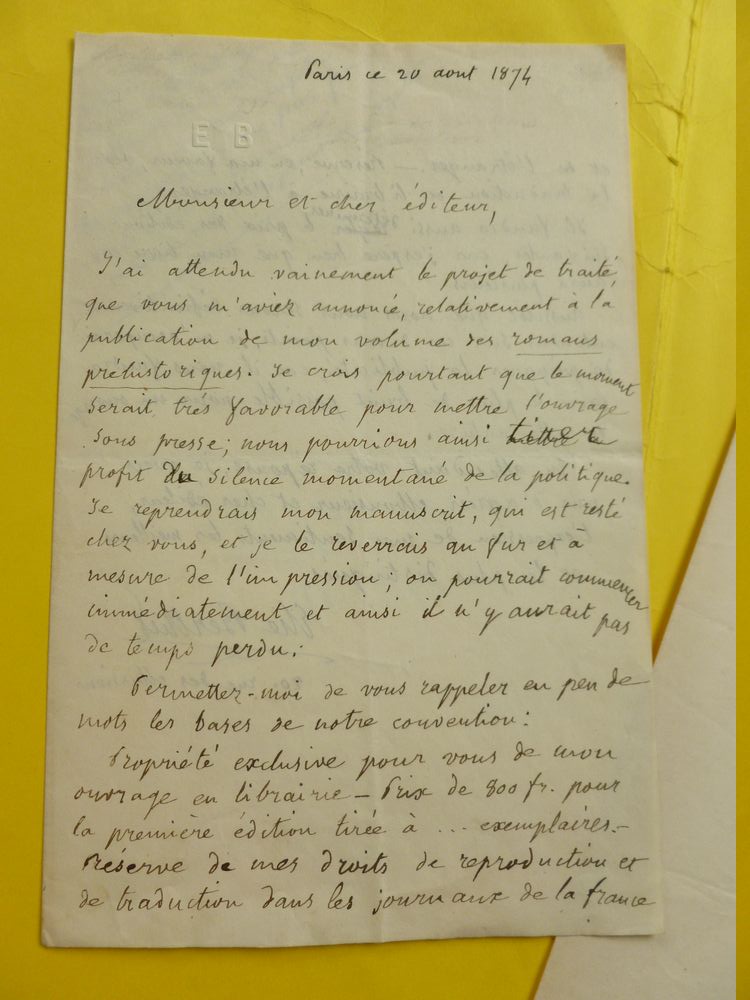 Paris ce 20 aout 1874
E B
Monsieur et cher éditeur,
J'ai attendu vainement le projet de traité
que vous m'aviez annoncé, relativement à la
publication de mon volume des romans
préhistoriques. Je crois pourtant que le moment
serait très favorable pour mettre l'ouvrage
sous presse; nous pourrions ainsi tirer
profit du silence momentané de la politique.
Je reprendrais mon manuscrit, qui est resté
chez vous, et je le reverrais au fur et à
mesure de l'impression; on pourrait commencer
immédiatement et ainsi il n'y aurait pas
de temps perdu.
Permettez-moi de vous rappeler en peu de
mots les bases de notre convention:
Propriété exclusive pour vous de mon
ouvrage en librairie — Prix de 800 fr. pour
la première édition tirée à ... exemplaires. —
Réserve de mes droits de reproduction et
de traduction dans les journaux de la france